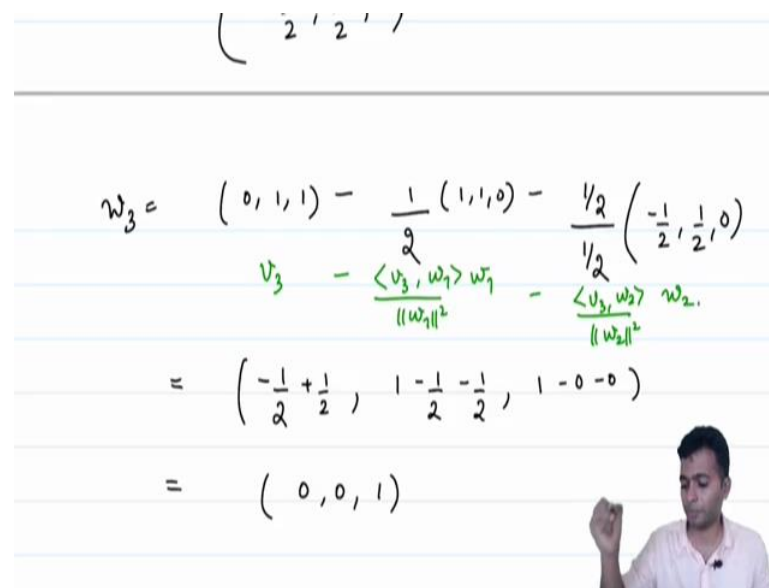 ( 1/2, 1/2, )
w₃ = (0, 1, 1) - 1/2 (1,1,0) - (1/2)/(1/2) (-1/2, 1/2, 0)
v₃ - <v₃, w₁>/||w₁||² w₁ - <v₃, w₂>/||w₂||² w₂.
= (-1/2 + 1/2, 1 - 1/2 - 1/2, 1 - 0 - 0)
= (0, 0, 1)